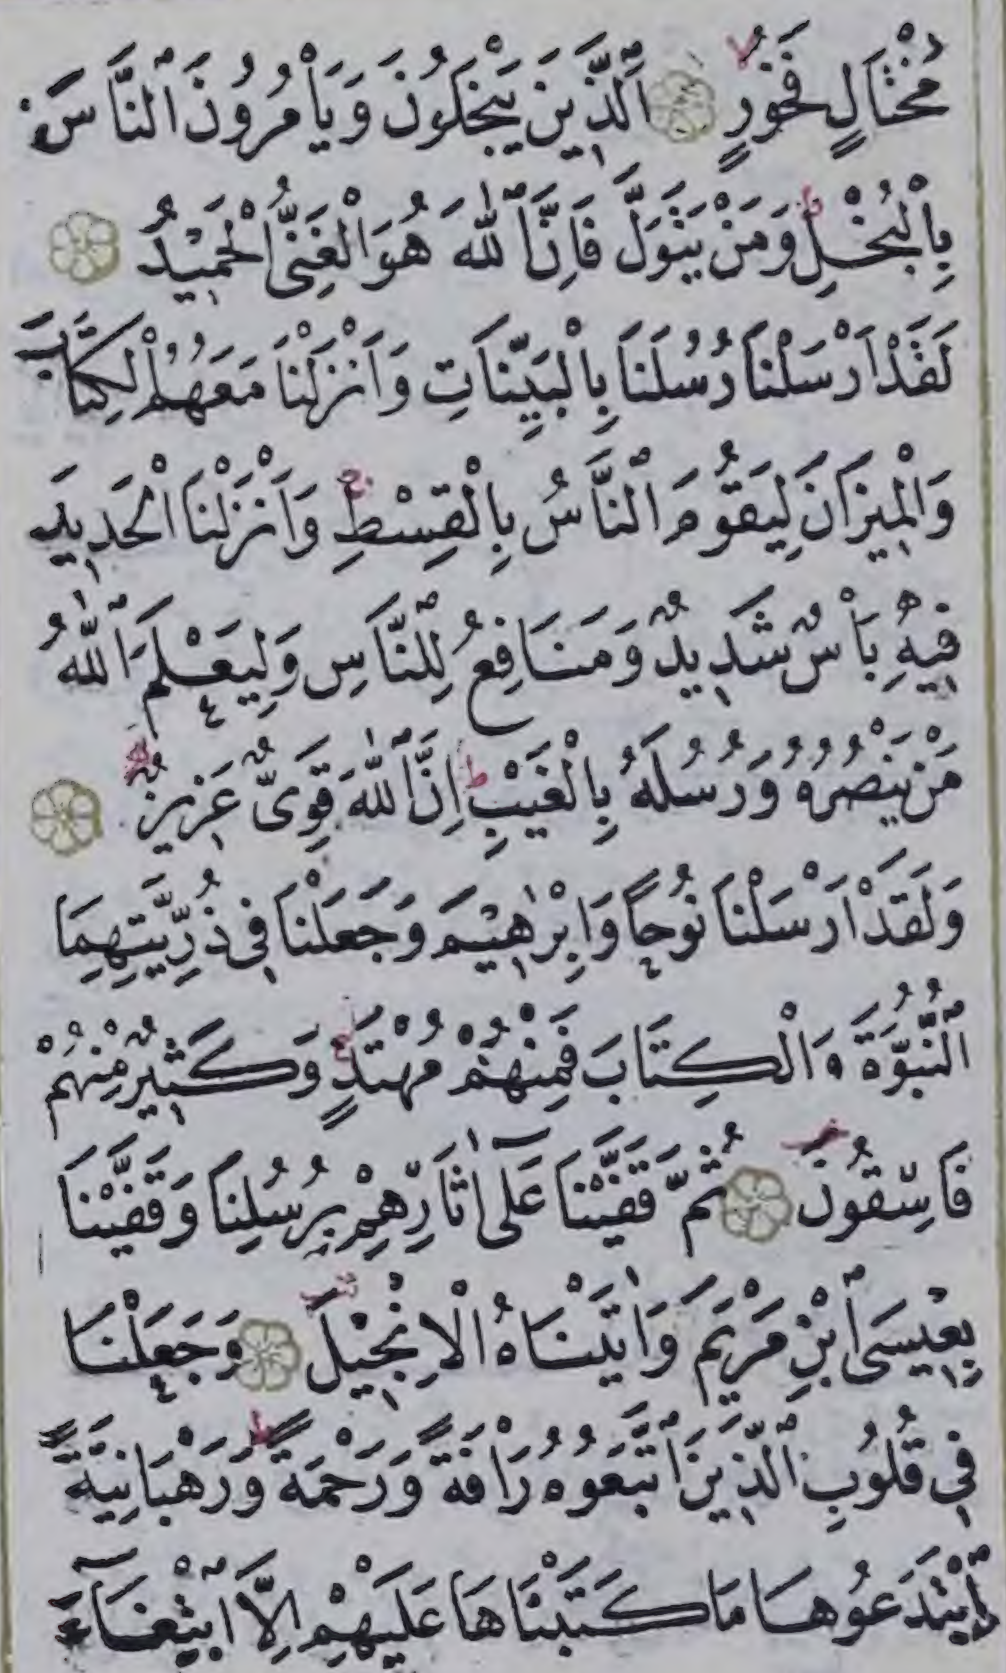 مُخْتَالٍ فَخُورٍ اَلَّذ۪ينَ يَبْخَلُونَ وَيَأْمُرُونَ ٱلنَّاسَ
بِالْبُخْلِ ط وَمَنْ يَتَوَلَّ فَاِنَّ ٱللّٰهَ هُوَ الْغَنِىُّ الْحَم۪يدُ
لَقَدْ اَرْسَلْنَا رُسُلَنَا بِالْبَيِّنَاتِ وَاَنْزَلْنَا مَعَهُمُ الْكِتَابَ
وَالْم۪يزَانَ لِيَقُومَ ٱلنَّاسُ بِالْقِسْطِ ج وَاَنْزَلْنَا الْحَد۪يدَ
ف۪يهِ بَأْسٌ شَد۪يدٌ وَمَنَافِعُ لِلنَّاسِ وَلِيَعْلَمَ ٱللّٰهُ
مَنْ يَنْصُرُهُ وَرُسُلَهُ بِالْغَيْبِ ط اِنَّ ٱللّٰهَ قَوِىٌّ عَز۪يزٌ
وَلَقَدْ اَرْسَلْنَا نُوحًا وَاِبْرٰه۪يمَ وَجَعَلْنَا ف۪ى ذُرِّيَّتِهِمَا
النُّبُوَّةَ وَالْكِتَابَ فَمِنْهُمْ مُهْتَدٍ ج وَكَث۪يرٌ مِنْهُمْ
فَاسِقُونَ ثُمَّ قَفَّيْنَا عَلٰٓى اٰثَارِهِمْ بِرُسُلِنَا وَقَفَّيْنَا
بِع۪يسَى ٱبْنِ مَرْيَمَ وَاٰتَيْنَاهُ الْاِنْج۪يلَ وَجَعَلْنَا
ف۪ى قُلُوبِ ٱلَّذ۪ينَ ٱتَّبَعُوهُ رَأْفَةً وَرَحْمَةً ط وَرَهْبَانِيَّةً
ٱبْتَدَعُوهَا مَا كَتَبْنَاهَا عَلَيْهِمْ اِلَّا ٱبْتِغَٓاءَ